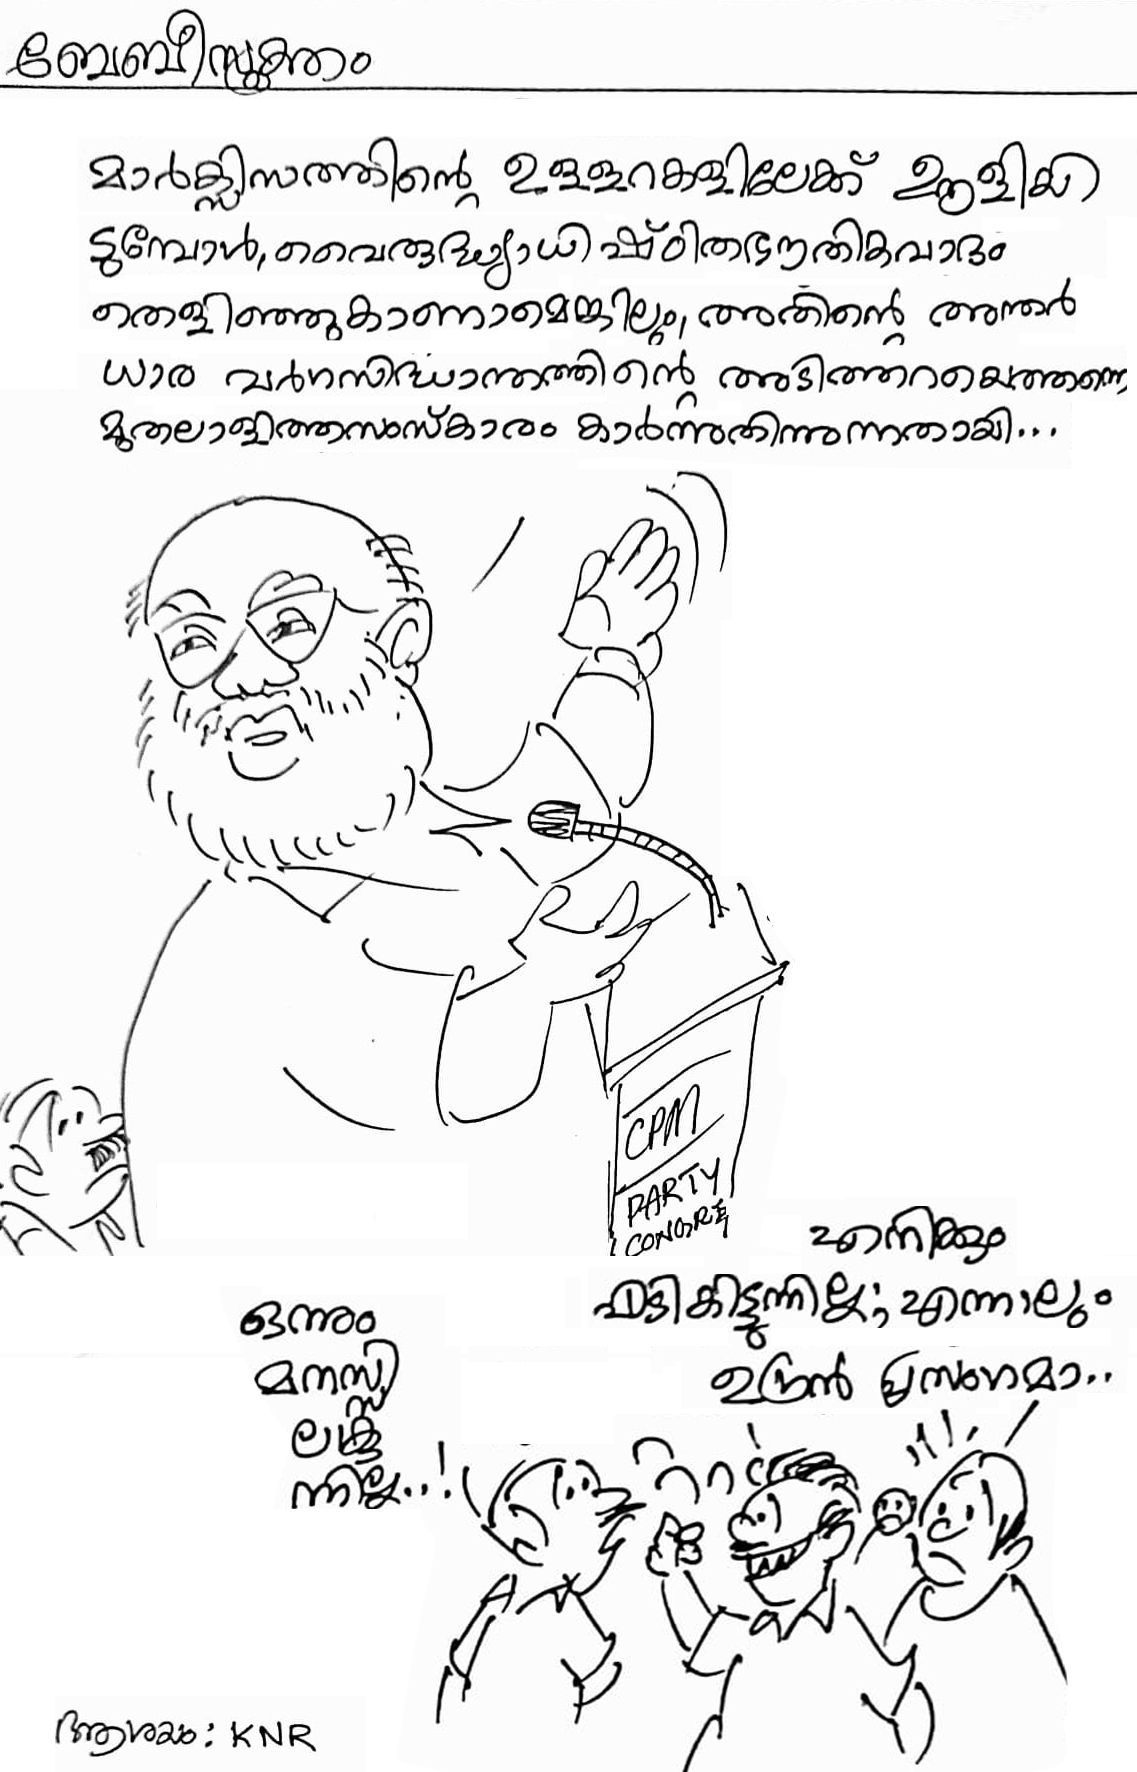 ബേബീസൂക്തം
മാർക്സിസത്തിന്റെ ഉള്ളറകളിലേക്ക് ഊളിയി
ട്ടുമ്പോൾ, വൈരുദ്ധ്യാധിഷ്ഠിതഭൗതികവാദം
തെളിഞ്ഞുകാണാമെങ്കിലും, അതിന്റെ അന്തർ
ധാര വർഗസിദ്ധാന്തത്തിന്റെ അടിത്തറയെത്തന്നെ
മുതലാളിത്തസംസ്കാരം കാർന്നുതിന്നുന്നതായി...
CPM
PARTY
എനിക്കും
പിടികിട്ടുന്നില്ല; എന്നാലും
ഉഗ്രൻ പ്രസംഗമാ..
ഒന്നും
മനസ്സി
ലാകു
ന്നില്ല..!
ആശയം: KNR